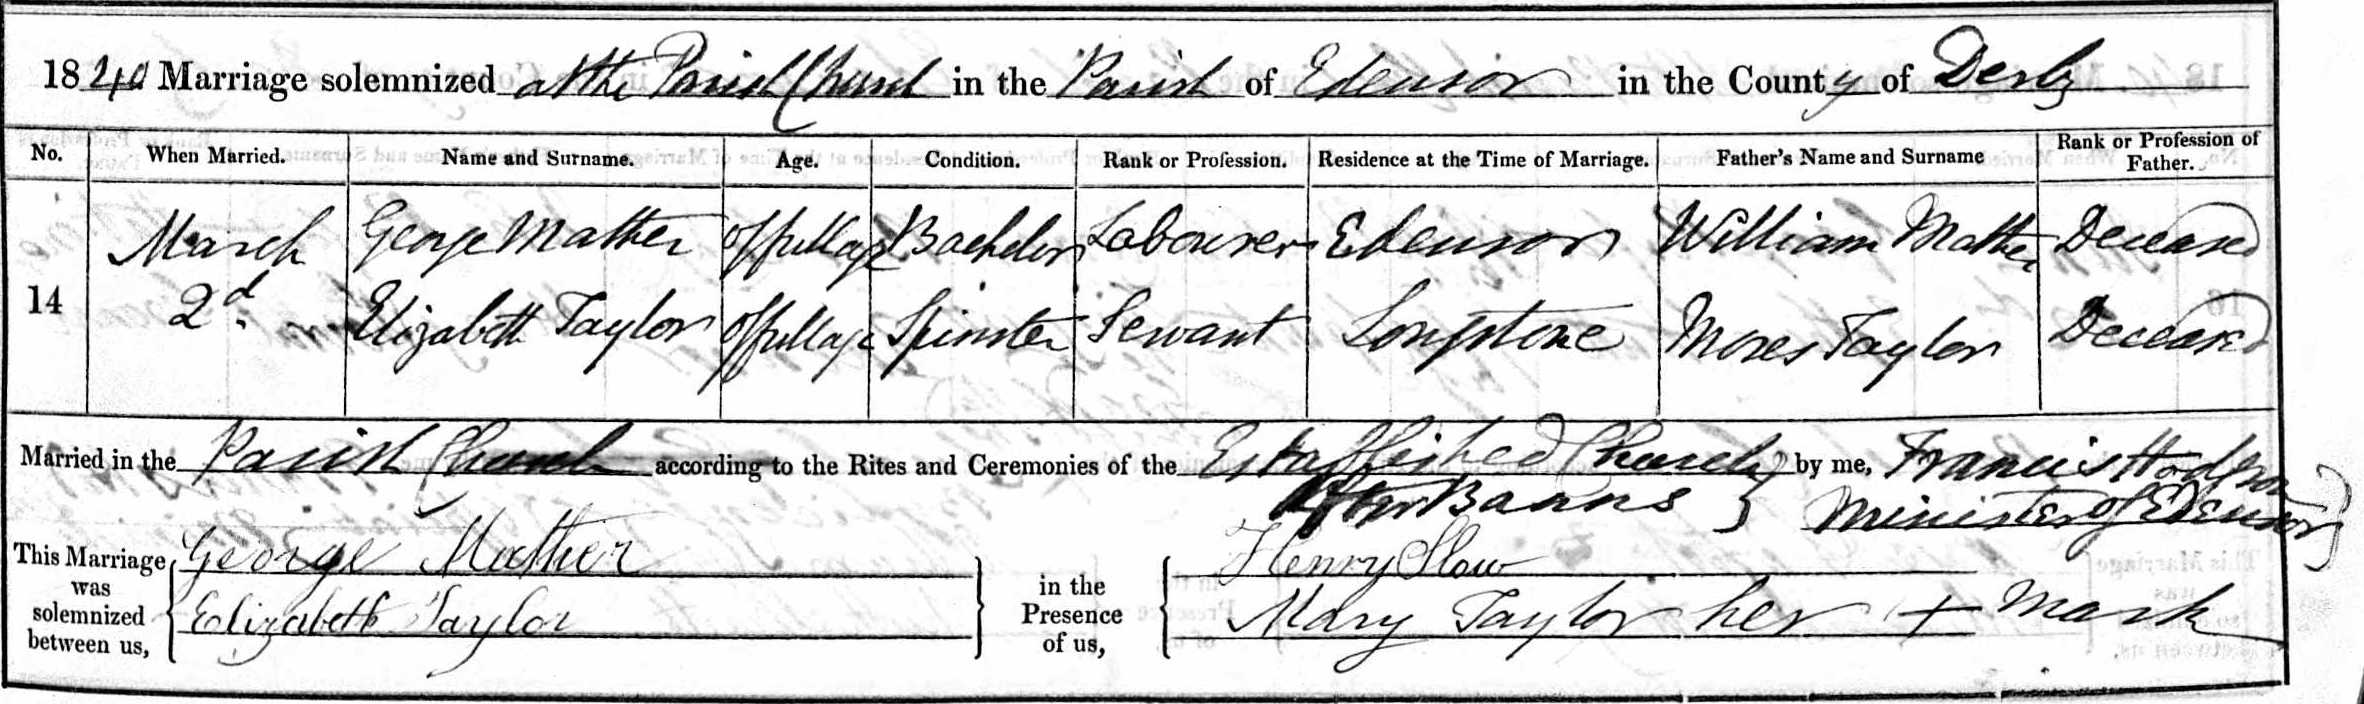 1840 Marriage solemnized at the Parish Church in the Parish of Edensor in the County of Derby
No. When Married. Name and Surname. Age. Condition. Rank or Profession. Residence at the Time of Marriage. Father's Name and Surname Rank or Profession of Father.
March George Mather Of full age Bachelor Labourer Edensor William Mather Deceased
14 2d. Elizabeth Taylor Of full age Spinster Servant Longstone Moses Taylor Deceased
Married in the Parish Church according to the Rites and Ceremonies of the Established Church by me, Francis Hodgson
After Banns } Minister of Edensor }
This Marriage was solemnized between us, { George Mather
Elizabeth Taylor } in the Presence of us, { Henry Slow
Mary Taylor her + Mark